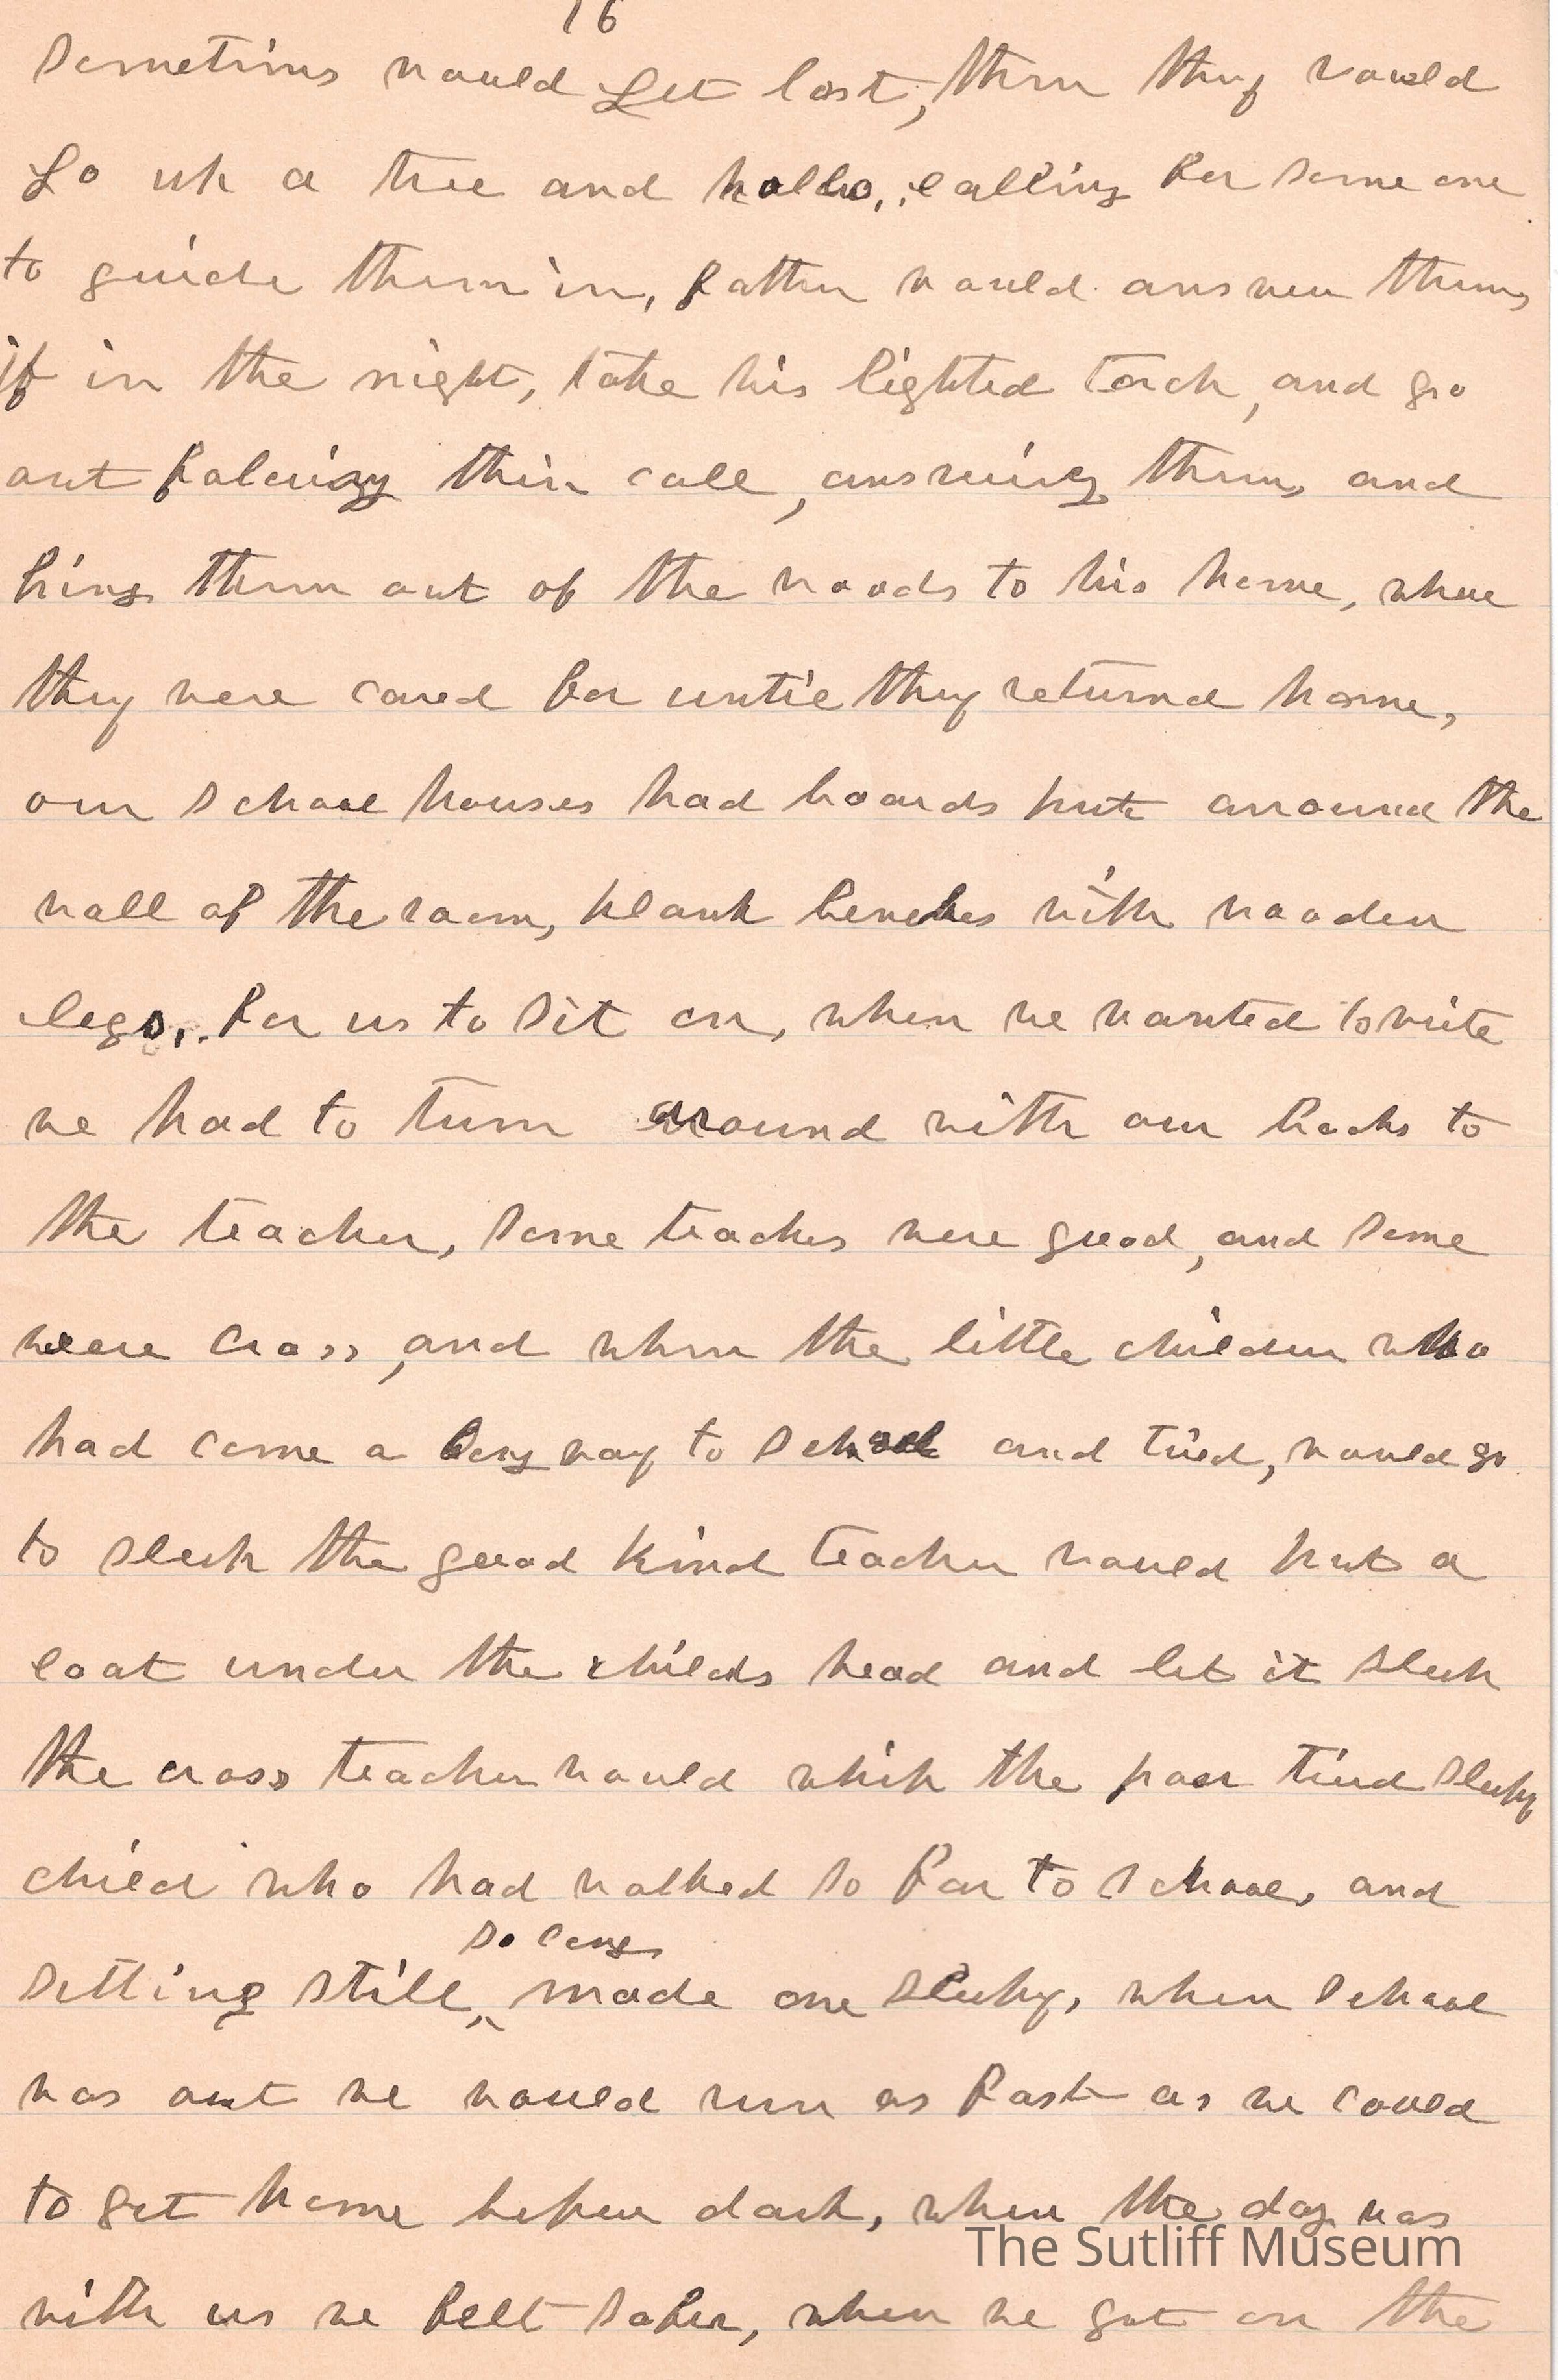 16
sometimes would get lost, then they would
go up a tree and hallo, calling for some one
to guide them in, father would answer them,
if in the night, take his lighted torch, and go
out folowing their call, answering them, and
bring them out of the woods to his home, where
they were cared for until they returnd home,
our school houses had boards put arround the
wall of the room, plank benches with wooden
legs, for us to sit on, when we wanted to write
we had to turn around with our backs to
the teacher, some teachers were good, and some
were cross, and when the little children who
had come a long way to school and tired, would go
to sleep the good kind teacher would put a
coat under the childs head and let it sleep
the cross teacher would whip the poor tired sleepy
child who had walked so far to school, and
so long
setting still, ^ made one sleepy, when school
was out we would run as fast as we could
to get home before dark, when the dog was
The Sutliff Museum
with us we felt safer, when we got on the